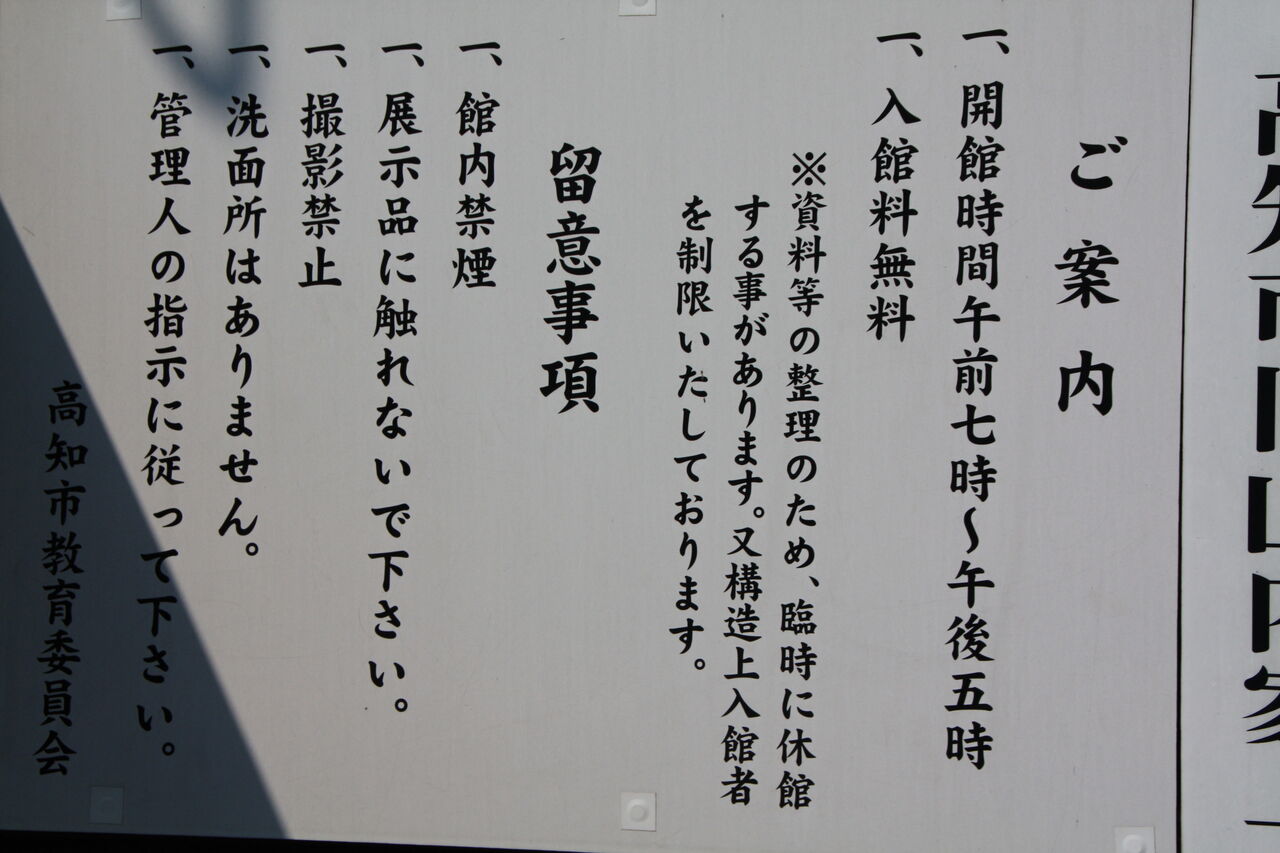 ご案内
一、開館時間午前七時～午後五時
一、入館料無料
※資料等の整理のため、臨時に休館
する事があります。又構造上入館者
を制限いたしております。
留意事項
一、館内禁煙
一、展示品に触れないで下さい。
一、撮影禁止
一、洗面所はありません。
一、管理人の指示に従って下さい。
高知市教育委員会